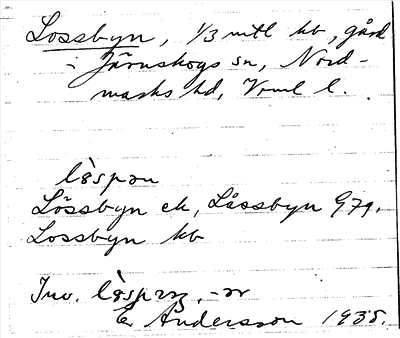 Lossbyn, 1/3 mtl kb, gård
i Järnskogs sn, Nord-
marks hd, Vrml l.
Lössbyn ek, Låssbyn G79.
Lossbyn kb
Inv.
E Andersson 1935.